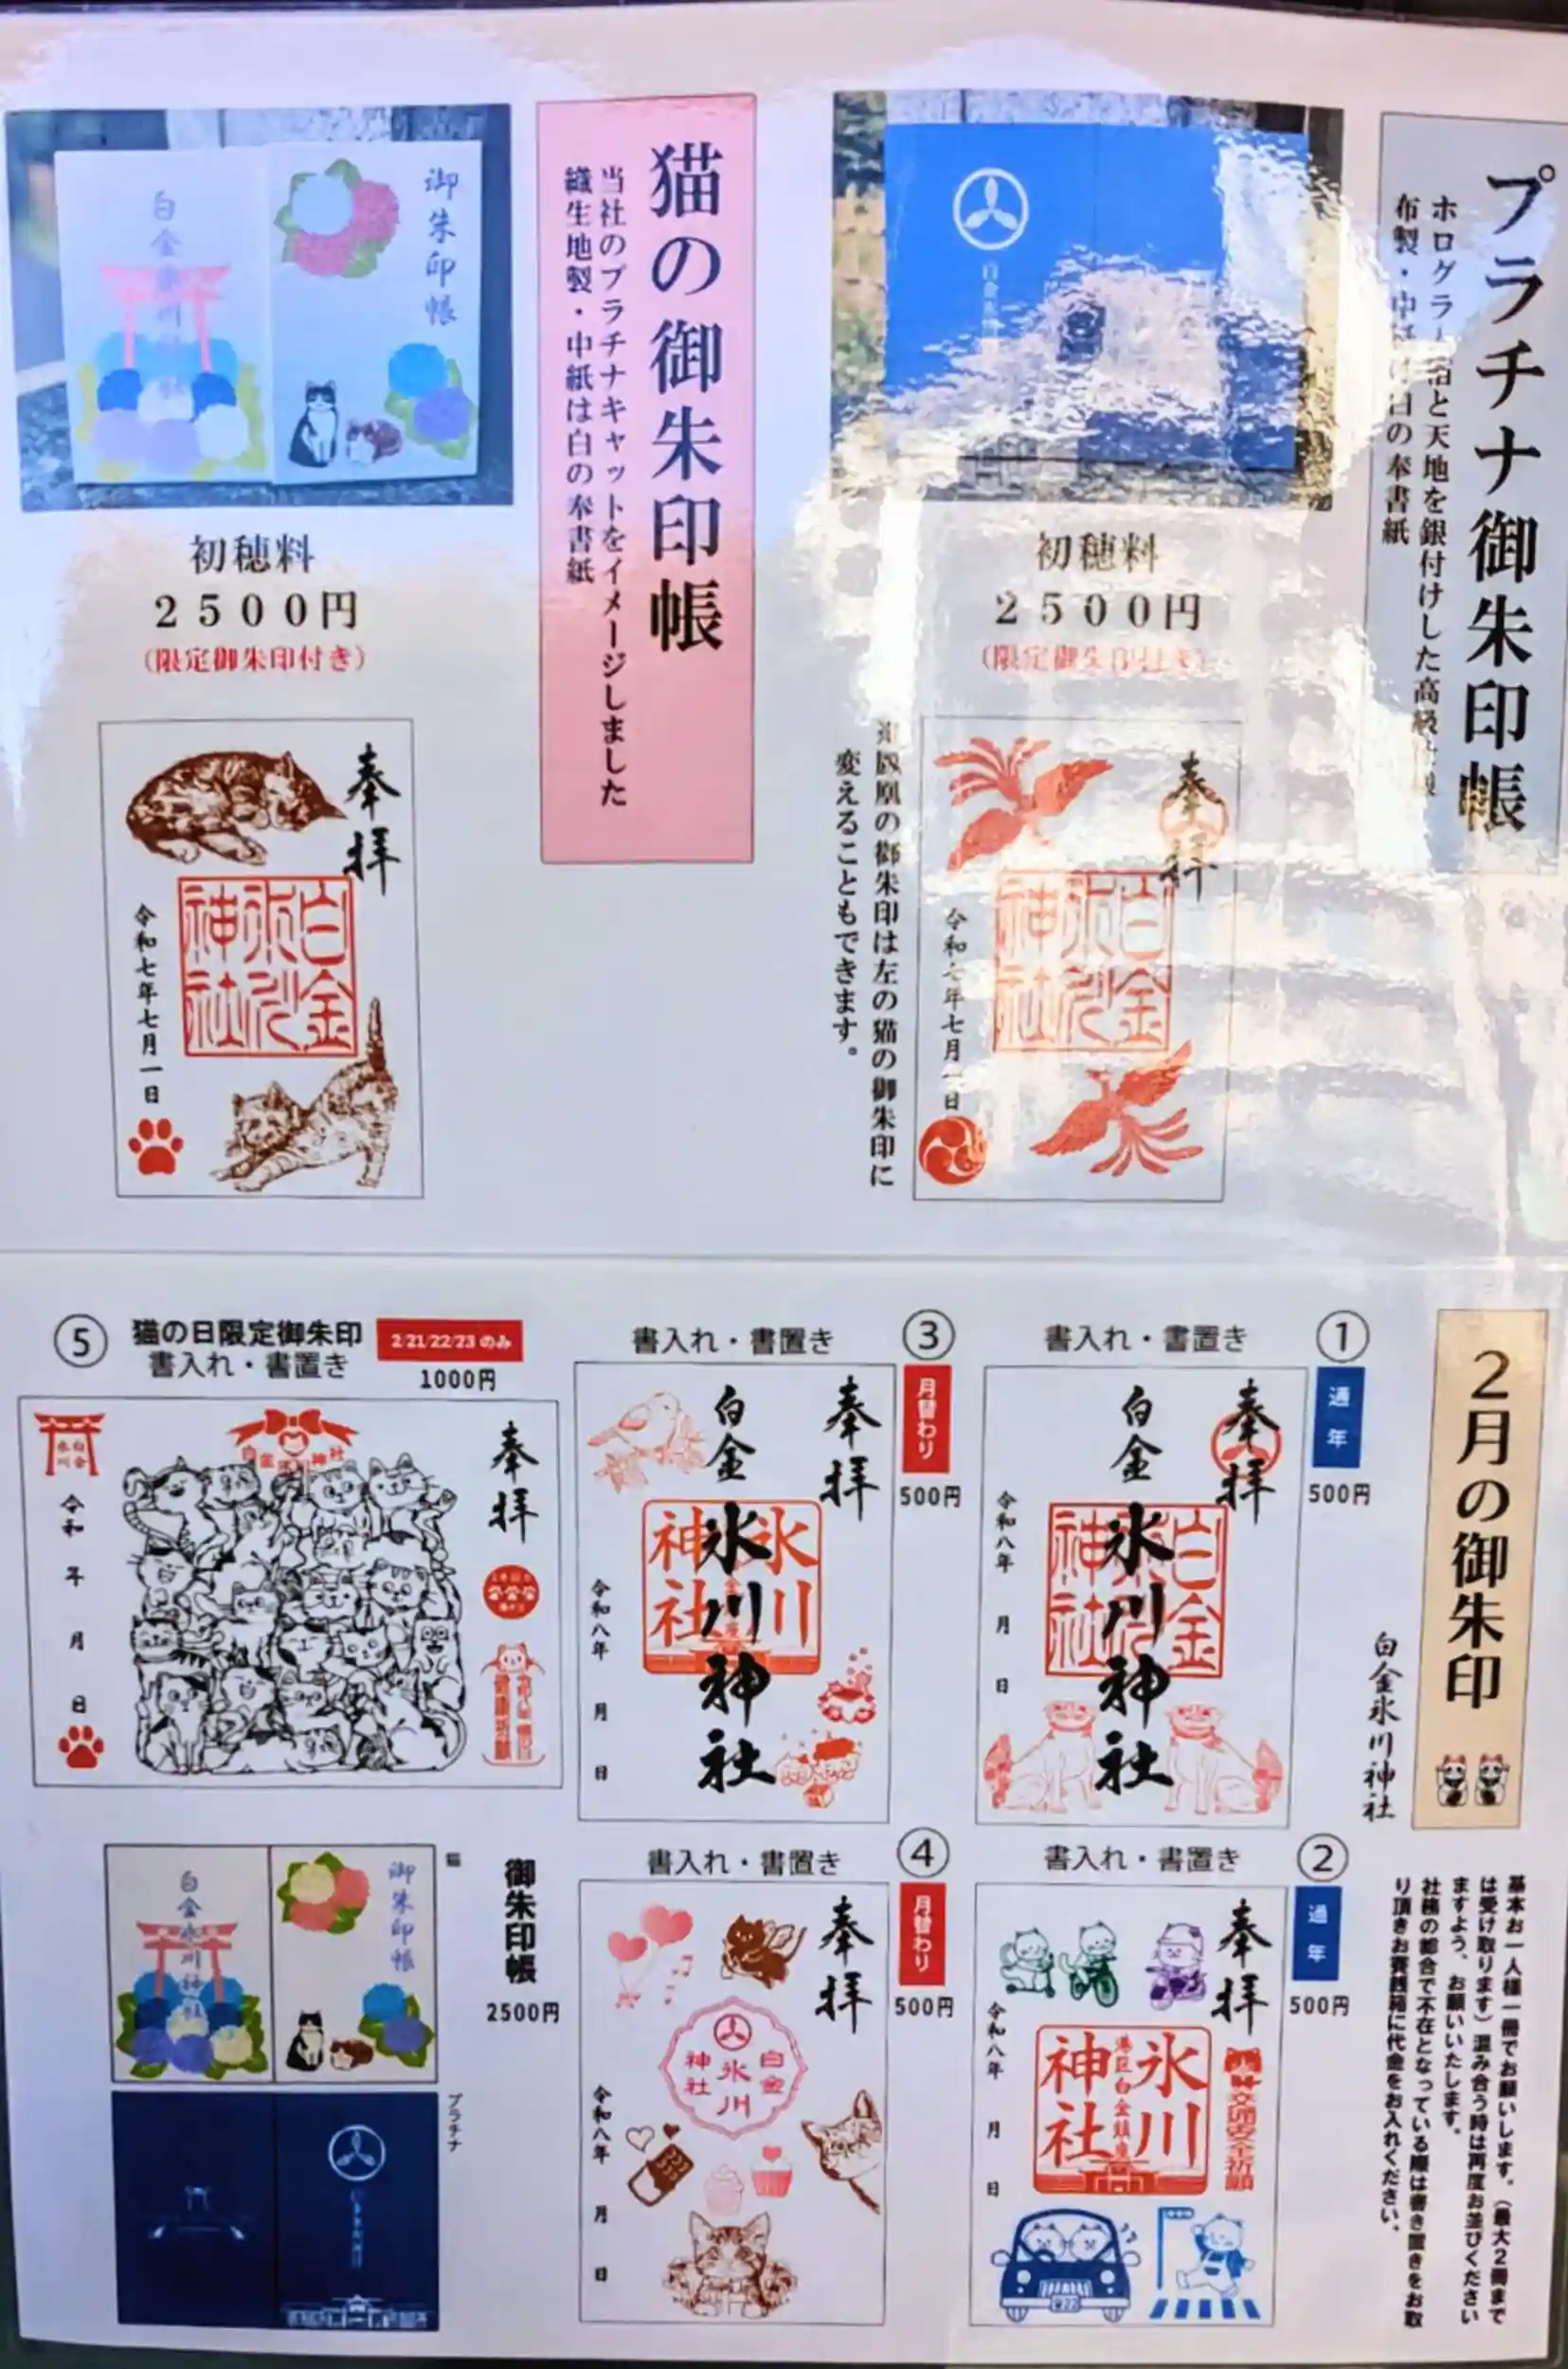 プラチナ御朱印帳
と天地を銀付けした高級
の奉書紙
初穂料
2500円
(限定御朱印付き)
奉拝
白金氷川神社
令和七年七月一日
鳳凰の御朱印は左の猫の御朱印に
変えることもできます。
猫の御朱印帳
当社のプラチナキャットをイメージしました
織生地製・中紙は白の奉書紙
御朱印帳
白金氷川
初穂料
2500円
(限定御朱印付き)
奉拝
白金氷川神社
令和七年七月一日
2月の御朱印
白金氷川神社
基本お一人様一冊でお願いします。(最大2冊まで
は受け取ります)混み合う時は再度お並びください
ますよう、お願いいたします。
社務の都合で不在となっている際は書き置きをお取
り頂きお賽銭箱に代金をお入れください。
①
書入れ・書置き
通年
500円
奉拝
白金氷川神社
白金氷川神社
令和八年 月 日
②
書入れ・書置き
通年
500円
奉拝
氷川神社
港区白金鎮座
交通安全祈願
令和八年 月 日
③
書入れ・書置き
月替わり
500円
奉拝
白金氷川神社
氷川神社
令和八年 月 日
④
書入れ・書置き
月替わり
500円
奉拝
白金氷川神社
令和八年 月 日
⑤
猫の日限定御朱印
書入れ・書置き
2/21/22/23のみ
1000円
奉拝
白金氷川神社
健康祈願
白金氷川
令和 年 月 日
御朱印帳
2500円
猫
御朱印帳
白金氷川神社
プラチナ